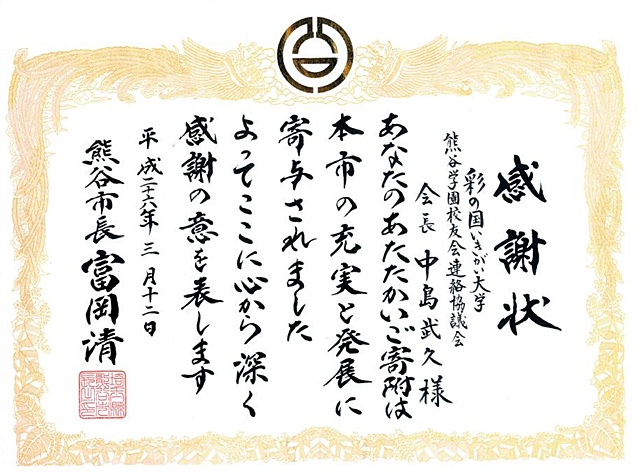 感謝状
彩の国いきがい大学
熊谷学園校友会連絡協議会
会長 中島武久様
あなたのあたたかいご寄附は
本市の充実と発展に
寄与されました
よってここに心から深く
感謝の意を表します
平成二十六年三月十二日
熊谷市長 富岡清